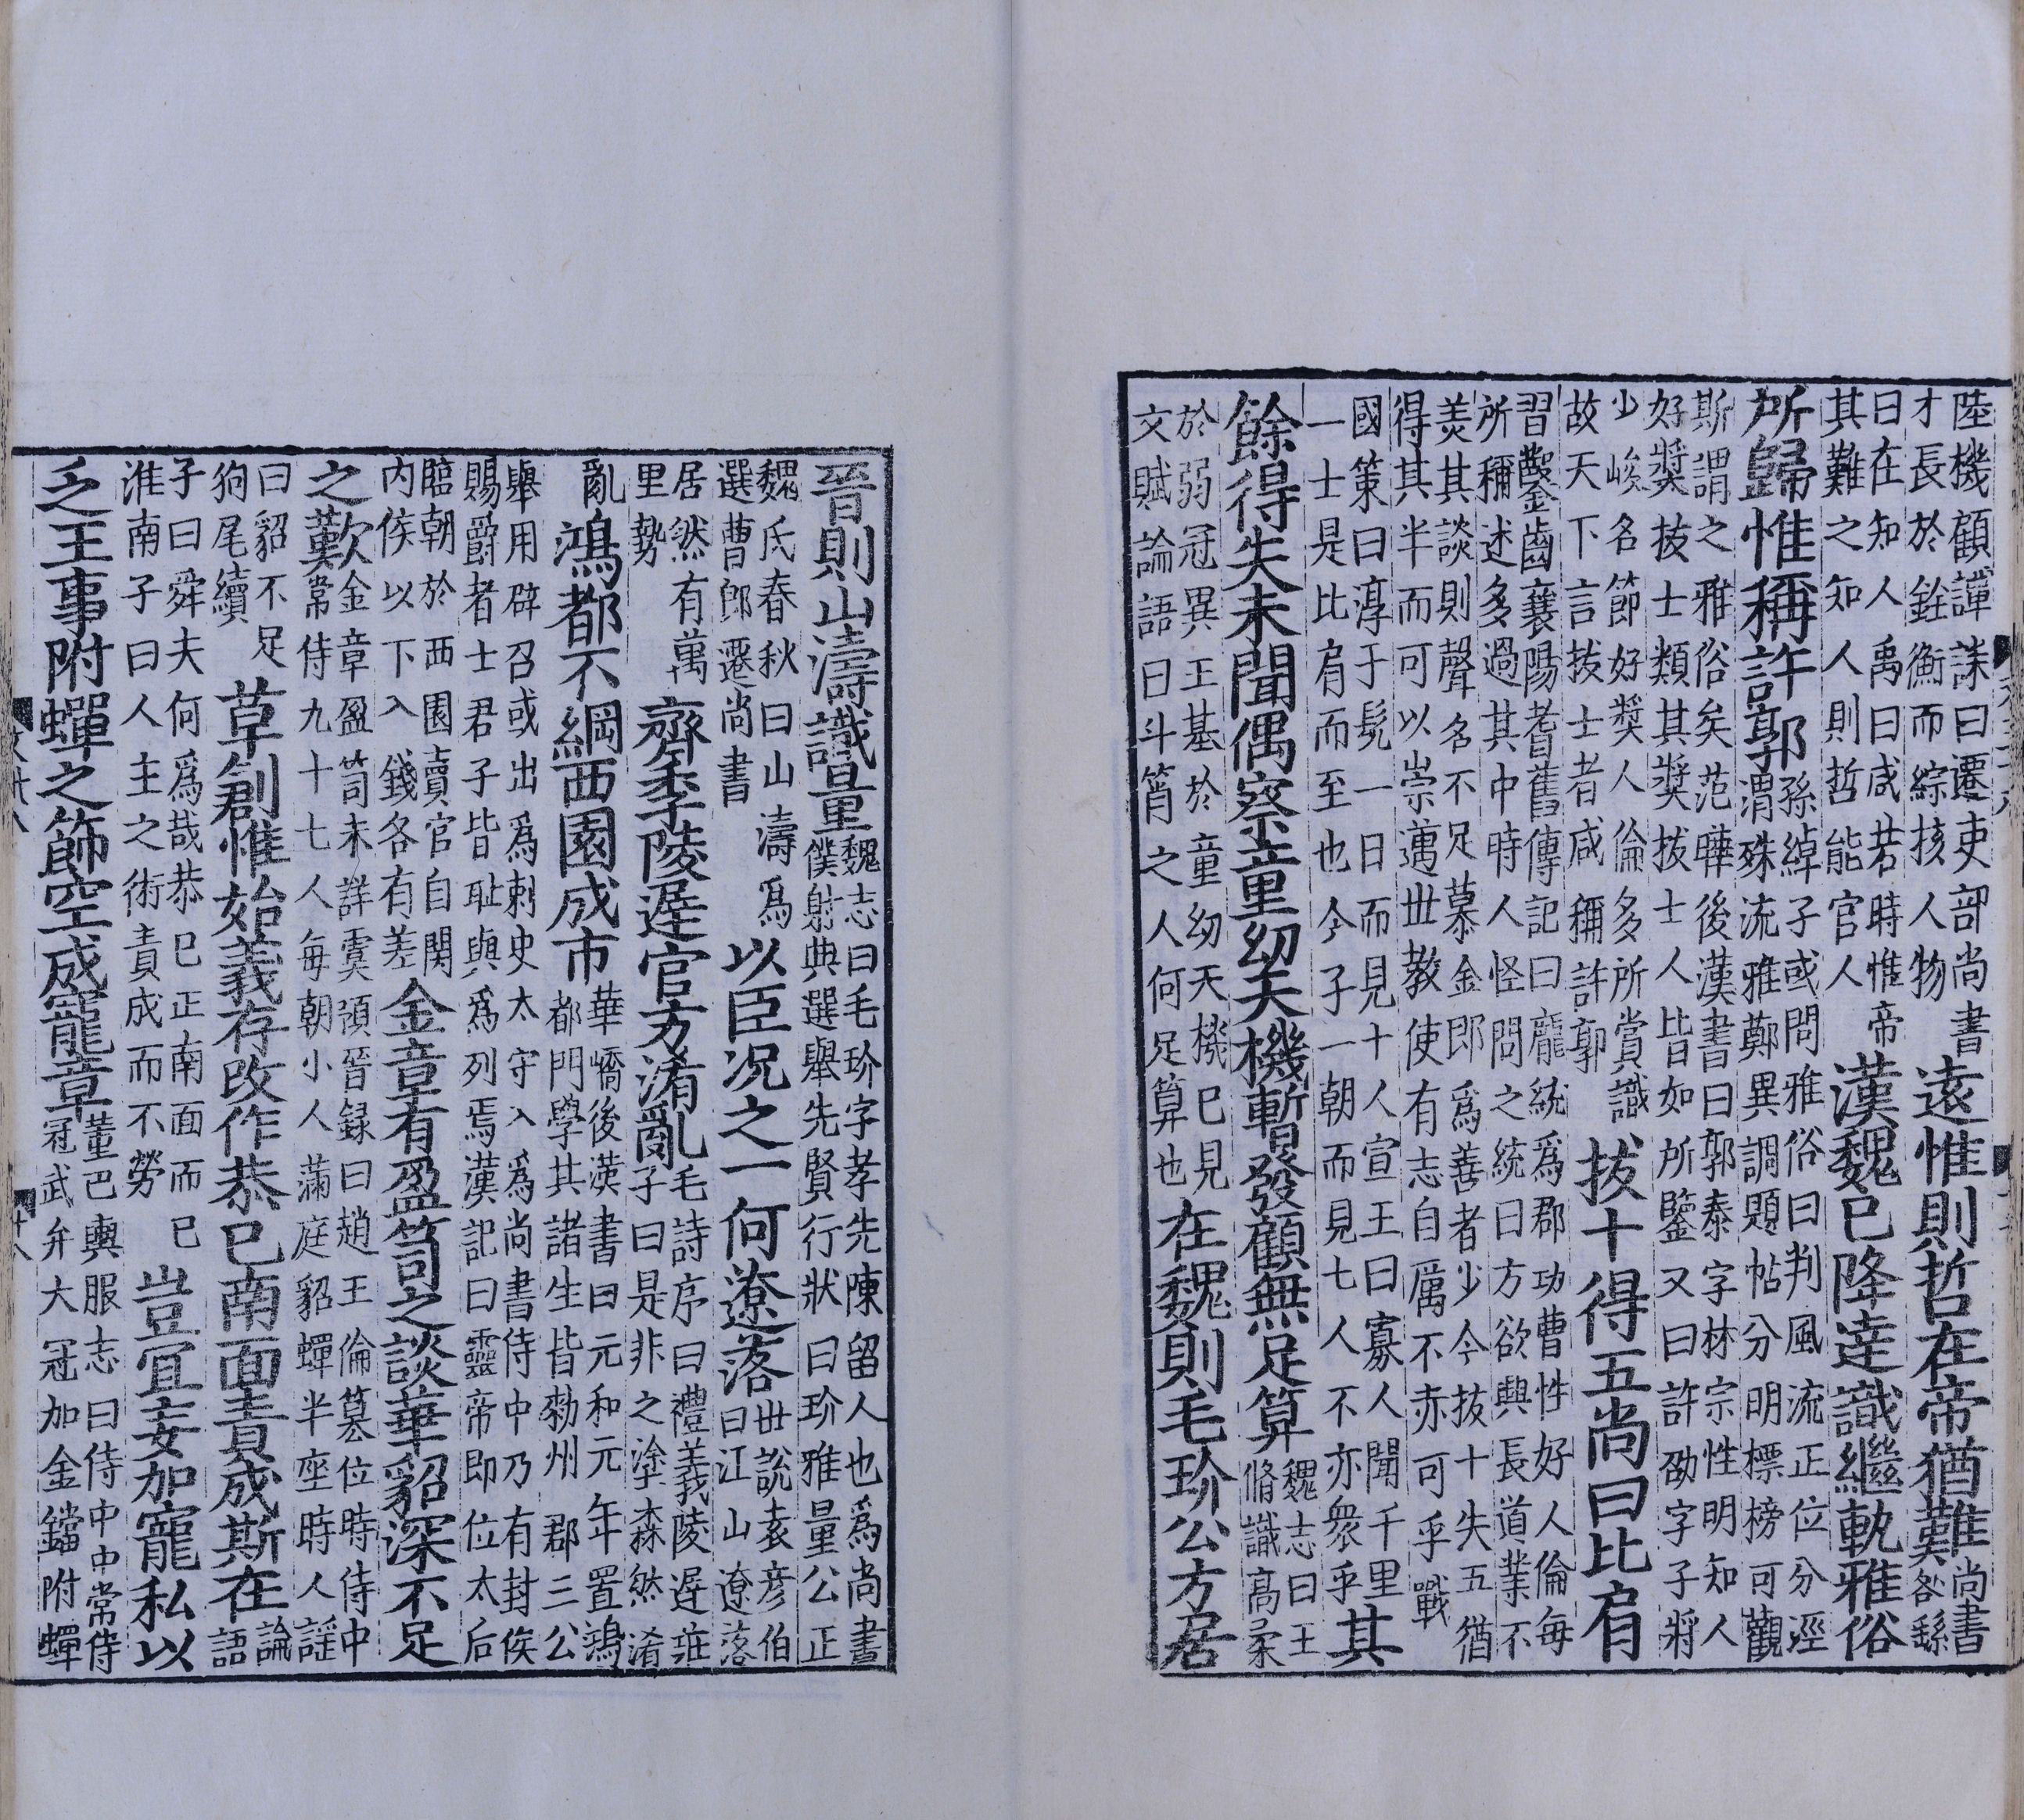 陸機顧譚誄曰遷吏部尚書
才長於銓衡而綜核人物
遠惟則哲在帝猶難
尚書
咎繇
曰在知人禹曰咸若時惟帝
其難之知人則哲能官人
漢魏已降達識繼軌雅俗
所歸惟稱許郭
孫綽子或問雅俗曰判風流正位分涇
渭殊流雅鄭異調題帖分明標榜可觀
斯謂之雅俗矣范曄後漢書曰郭泰字林宗性明知人
好奬拔士類其奬拔士人皆如所鑒又曰許劭字子將
少峻名節好奬人倫多所賞識
故天下言拔士者咸稱許郭
拔十得五尚曰比肩
習鑿齒襄陽耆舊傳記曰龐統爲郡功曹性好人倫每
所稱述多過其中時人怪問之統曰方欲與長道業不
羙其談則聲名不足慕金郎爲善者少今拔十失五猶
得其半而可以崇邁世教使有志自厲不赤可乎戰
國策曰淳于髡一日而見十人宣王曰寡人聞千里
一士是比肩而至也今子一朝而見七人不亦衆乎
其
餘得失未聞偶察童幼天機暫發顧無足算
魏志曰王
脩識高柔
於弱冠異王基於童幼天機已見
文賦論語曰斗筲之人何足算也
在魏則毛玠公方居
晉則山濤識量
魏志曰毛玠字孝先陳留人也爲尚書
僕射典選舉先賢行狀曰玠雅量公正
魏氏春秋曰山濤爲
選曹郎遷尚書
以臣況之一何遼落
世說袁彥伯
曰江山遼落
居然有萬
里勢
齊季陵遲官方淆亂
毛詩序曰禮義陵遲莊
子曰是非之塗森然淆
亂
鴻都不綱西園成市
華嶠後漢書曰元和元年置鴻
都門學其諸生皆勑州郡三公
舉用辟召或出爲刺史太守入爲尚書侍中乃有封侯
賜爵者士君子皆恥與爲列焉漢記曰靈帝即位太后
臨朝於西園賣官自関
內侯以下入錢各有差
金章有盈笥之談華貂深不足
之歎
金章盈笥未詳虞預晉録曰趙王倫篡位時侍中
常侍九十七人每朝小人滿庭貂蟬半座時人謡
曰貂不足
狗尾續
草創惟始義存改作恭已南面責成斯在
論
語
子曰舜夫何爲哉恭已正南面而已
淮南子曰人主之術責成而不勞
豈宜妄加寵私以
乏王事附蟬之飾空成寵章
董巴輿服志曰侍中中常侍
冠武弁大冠加金鐺附蟬